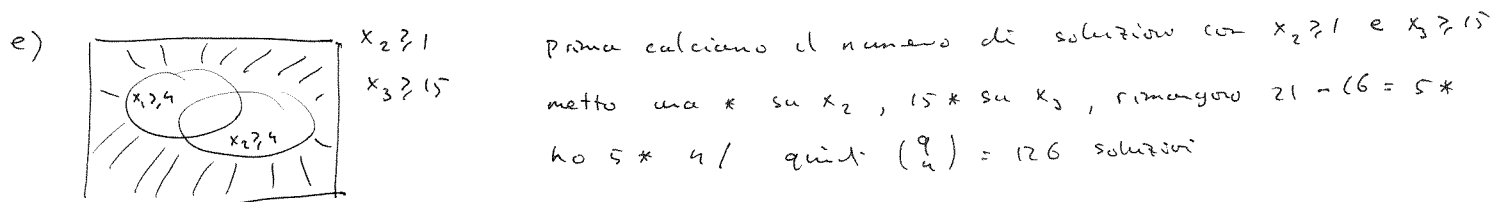 e)
x₂ ≥ 1
x₃ ≥ 15
x₁ ≥ 4
x₂ ≥ 4
prima calciamo il numero di soluzioni con x₂ ≥ 1 e x₃ ≥ 15
metto una * su x₂, 15 * su x₃, rimangono 21 - 16 = 5 *
ho 5 * 4 / quindi (9 4) = 126 soluzioni